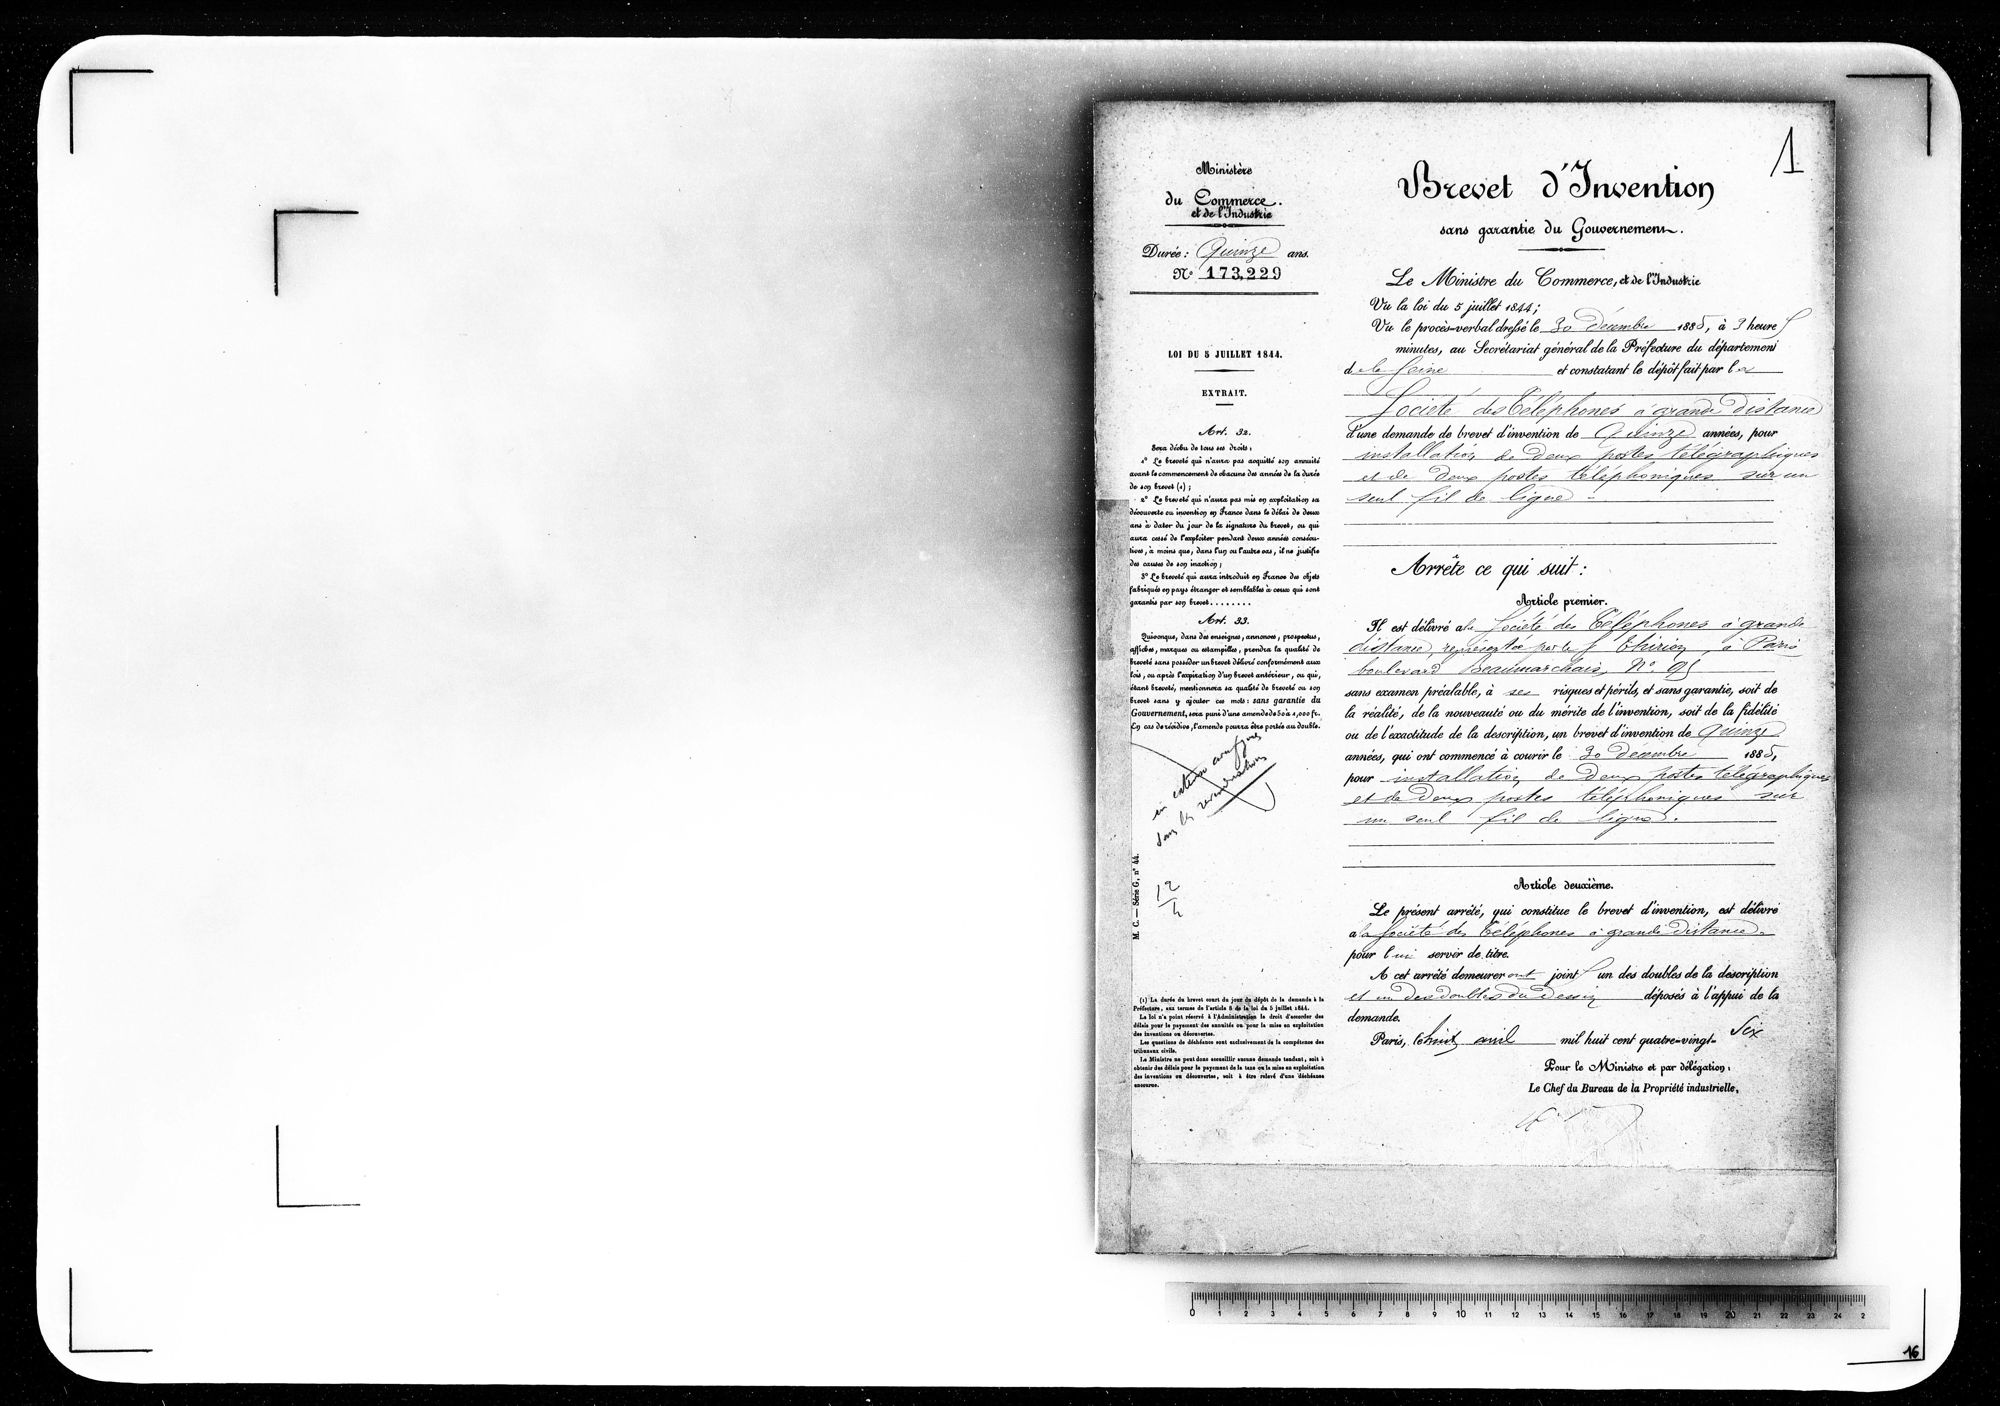 1
Ministère
du Commerce.
et de l'Industrie
Durée : Quinze ans.
N° 173,229
LOI DU 5 JUILLET 1844.
EXTRAIT.
Art. 32.
Sera déchu de tous ses droits :
1° Le breveté qui n'aura pas acquitté son annuité
avant le commencement de chacune des années de la durée
de son brevet (1) ;
2° Le breveté qui n'aura pas mis en exploitation sa
découverte ou invention en France dans le délai de deux
ans à dater du jour de la signature du brevet, ou qui
aura cessé de l'exploiter pendant deux années consécu-
tives, à moins que, dans l'un ou l'autre cas, il ne justifie
des causes de son inaction ;
3° Le breveté qui aura introduit en France des objets
fabriqués en pays étranger et semblables à ceux qui sont
garantis par son brevet........
Art. 33.
Quiconque, dans des enseignes, annonces, prospectus,
affiches, marques ou estampilles, prendra la qualité de
breveté sans posséder un brevet délivré conformément aux
lois, ou après l'expiration d'un brevet antérieur, ou qui,
étant breveté, mentionnera sa qualité de breveté ou son
brevet sans y ajouter ces mots : sans garantie du
Gouvernement, sera puni d'une amende de 50 à 1,000 fr.
En cas de récidive, l'amende pourra être portée au double.
12
M. C. — Série G, n° 44.
(1) La durée du brevet court du jour du dépôt de la demande à la
Préfecture, aux termes de l'article 8 de la loi du 5 juillet 1844.
La loi n'a point réservé à l'Administration le droit d'accorder des
délais pour le payement des annuités ou pour la mise en exploitation
des inventions ou découvertes.
Les questions de déchéance sont exclusivement de la compétence des
tribunaux civils.
Le Ministre ne peut donc accueillir aucune demande tendant, soit à
obtenir des délais pour le payement de la taxe ou la mise en exploitation
des inventions ou découvertes, soit à être relevé d'une déchéance
encourue.
Brevet d'Invention
sans garantie du Gouvernement.
Le Ministre du Commerce, et de l'Industrie
Vu la loi du 5 juillet 1844 ;
Vu le procès-verbal dressé le 30 décembre 1885, à 3 heures
minutes, au Secrétariat général de la Préfecture du département
de la Seine et constatant le dépôt fait par la
Société des Téléphones à grande distance
d'une demande de brevet d'invention de Quinze années, pour
installation de deux postes télégraphiques
et de deux postes téléphoniques sur un
seul fil de ligne.
Arrête ce qui suit :
Article premier.
Il est délivré à la Société des Téléphones à grande
distance, représentée par le S. Thirion, à Paris
boulevard Beaumarchais, N° 95
sans examen préalable, à ses risques et périls, et sans garantie, soit de
la réalité, de la nouveauté ou du mérite de l'invention, soit de la fidélité
ou de l'exactitude de la description, un brevet d'invention de Quinze
années, qui ont commencé à courir le 30 décembre 1885,
pour installation de deux postes télégraphiques
et de deux postes téléphoniques sur
un seul fil de ligne.
Article deuxième.
Le présent arrêté, qui constitue le brevet d'invention, est délivré
à la Société des Téléphones à grande distance.
pour lui servir de titre.
A cet arrêté demeureront joints un des doubles de la description
et un des doubles du dessin déposés à l'appui de la
demande.
Paris, le huit avril mil huit cent quatre-vingt-six
Pour le Ministre et par délégation :
Le Chef du Bureau de la Propriété industrielle,
0 1 2 3 4 5 6 7 8 9 10 11 12 13 14 15 16 17 18 19 20 21 22 23 24 2
16